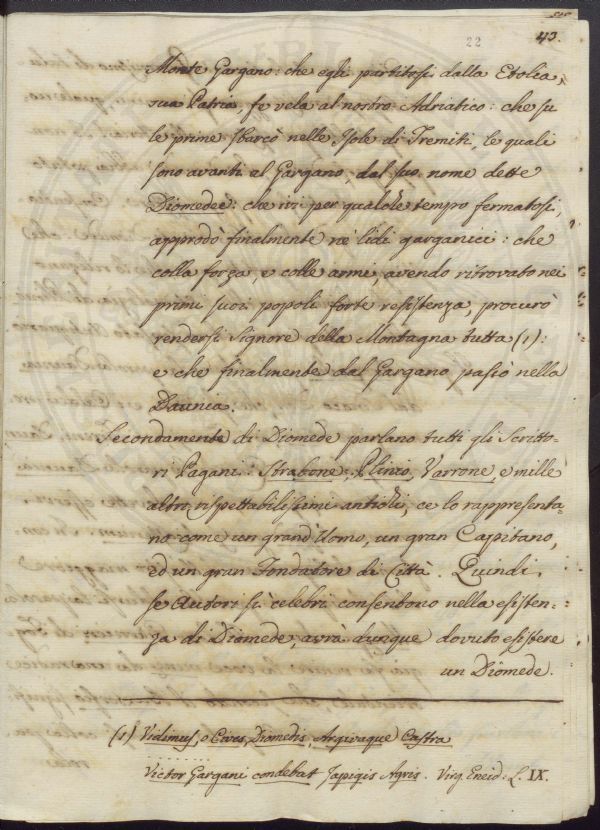 43.
22
Monte Gargano: che egli partitosi dalla Etolia,
sua Patria, fe vela al nostro Adriatico: che su
le prime sbarcò nelle Isole di Tremiti, le quali
sono avanti al Gargano, dal suo nome dette
Diomedee: che ivi per qualche tempo fermatosi,
approdò finalmente ne' lidi garganici: che
colla forza, e colle armi, avendo ritrovato nei
primi suoi popoli forte resistenza, procurò
rendersi Signore della Montagna tutta (1):
e che finalmente dal Gargano passò nella
Daunia.
Secondamente di Diomede parlano tutti gli Scritto-
ri Pagani. Strabone, Plinio, Varrone, e mille
altri rispettabilissimi antichi, ce lo rappresenta-
no come un grand'Uomo, un gran Capitano,
ed un gran Fondatore di Città. Quindi,
se Autori sì celebri consentono nella esisten-
za di Diomede, avrà dunque dovuto esistere
un Diomede.
(1) Vidimus, o Cives, Diomedis, Argivaque Castra
Victor Gargani condebat Japigis Agris. Virg. Eneid. L. IX.